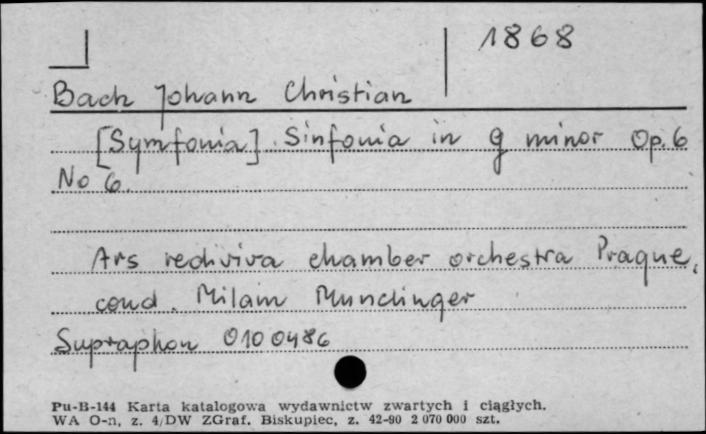 1868
Bach Johann Christian
[Symfonia]. Sinfonia in g minor Op. 6
No 6.
Ars rediviva chamber orchestra Prague,
cond. Milam Munclinger
Supraphon 010 0486
Pu-B-144 Karta katalogowa wydawnictw zwartych i ciągłych.
WA O-n, z. 4/DW ZGraf. Biskupiec, z. 42-90 2 070 000 szt.